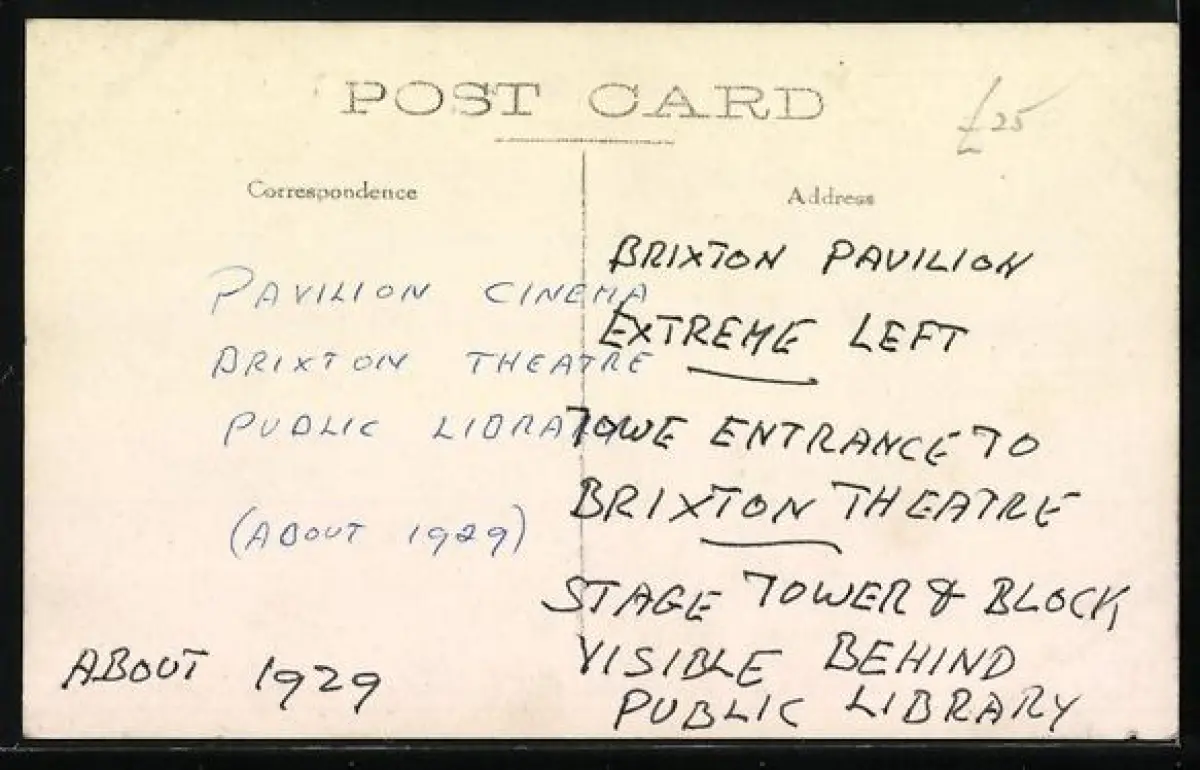 POST CARD
£25
Correspondence
Address
PAVILION CINEMA
BRIXTON THEATRE
PUBLIC LIBRA
(ABOUT 1929)
ABOUT 1929
BRIXTON PAVILION
EXTREME LEFT
TOWE ENTRANCE TO
BRIXTON THEATRE
STAGE TOWER & BLOCK
VISIBLE BEHIND
PUBLIC LIBRARY